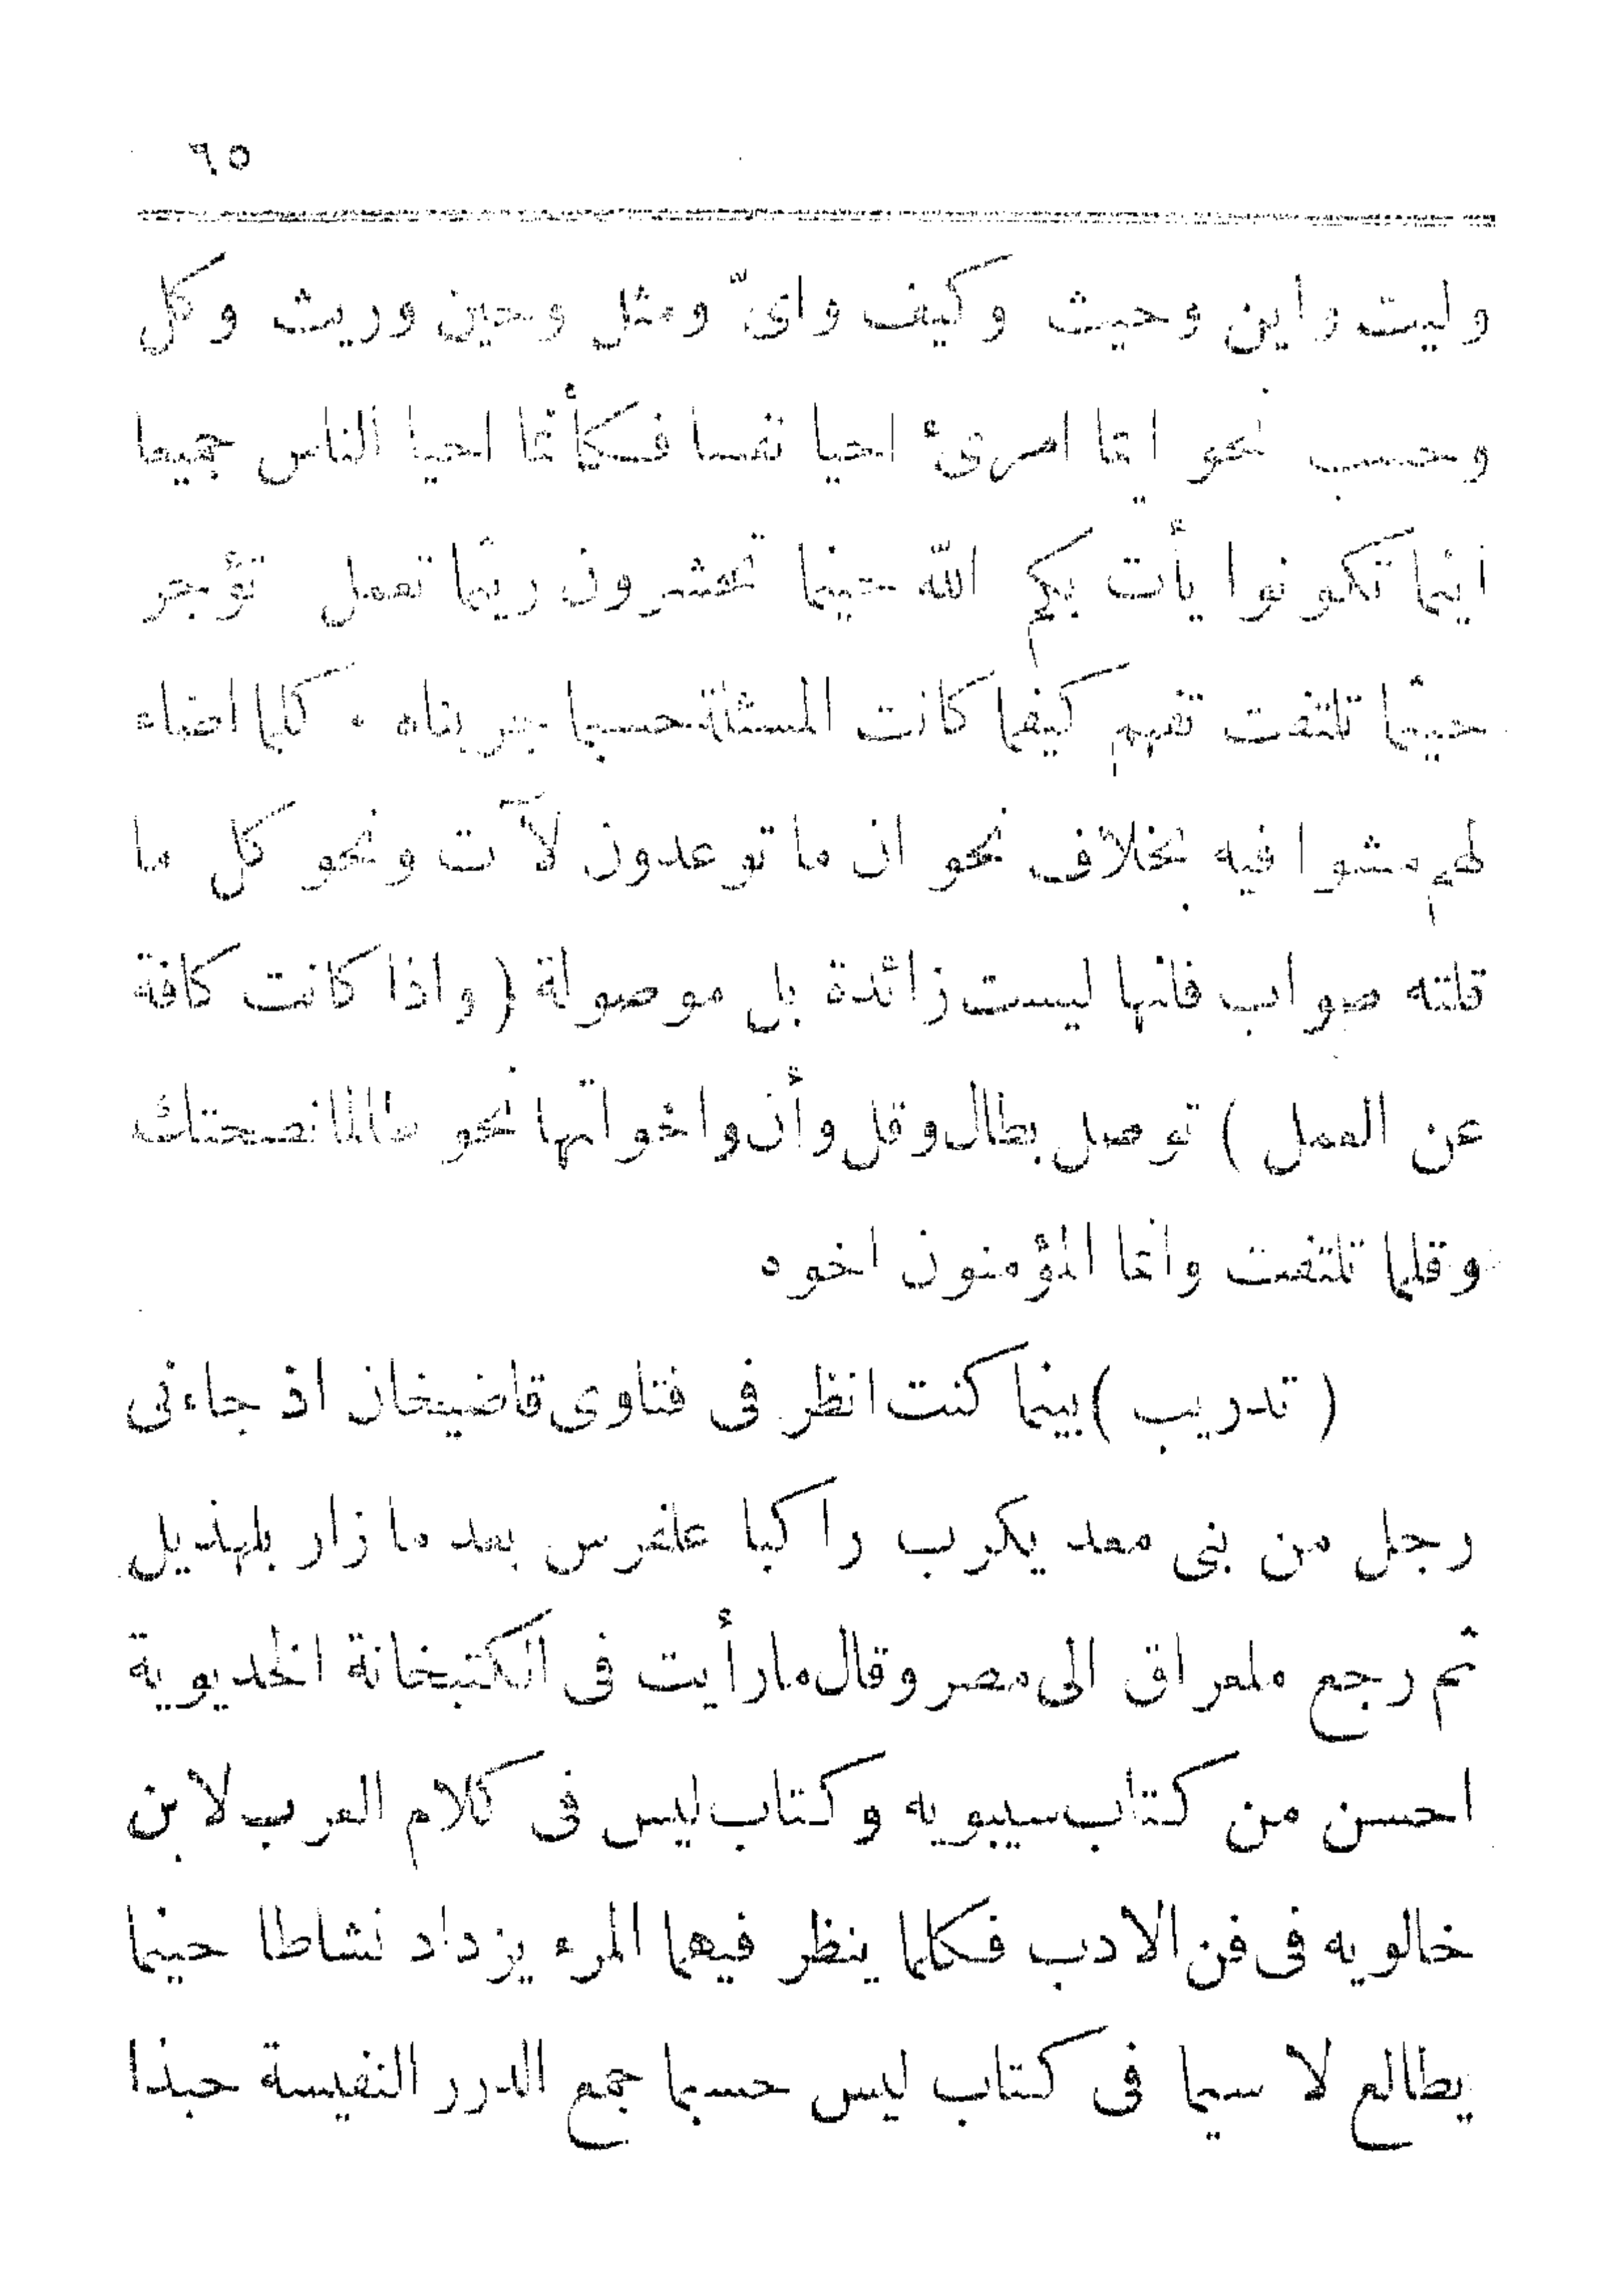 ٦٥
وليت واين وحيث وكيف واىّ ومثل وحين وريث وكل
وحسب نحو ايما امرئ احيا نفسا فكأنما احيا الناس جميعا
اينما تكونوا يأت بكم اللّه حينما تحشرون ريثما تعمل تؤجر
حيثما تلتفت تفهم كيفما كانت المسئلة حسبما جربناه . كلما اضاء
لهم مشوا فيه بخلاف نحو ان ما توعدون لآت ونحو كل ما
قلته صواب فانها ليست زائدة بل موصولة (واذا كانت كافة
عن العمل) توصل بطال وقل وأن واخواتها نحو طالما نصحتك
وقلما تلتفت وانما المؤمنون اخوه
(تدريب) بينما كنت انظر فى فتاوى قاضيخان اذ جاءنى
رجل من بنى معد يكرب راكبا علفرس بعد ما زار بلهذيل
ثم رجع ملعراق الى مصر وقال ما رأيت فى الكتبخانة الخديوية
احسن من كتاب سيبويه وكتاب ليس فى كلام العرب لابن
خالويه فى فن الادب فكلما ينظر فيهما المرء يزداد نشاطا حينما
يطالع لا سيما فى كتاب ليس حسبما جمع الدرر النفيسة حبذا